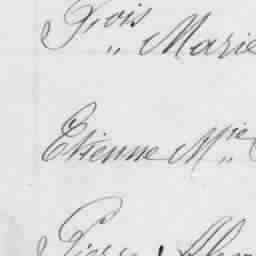 Fois „ Marie
Etienne Mie
Pierre